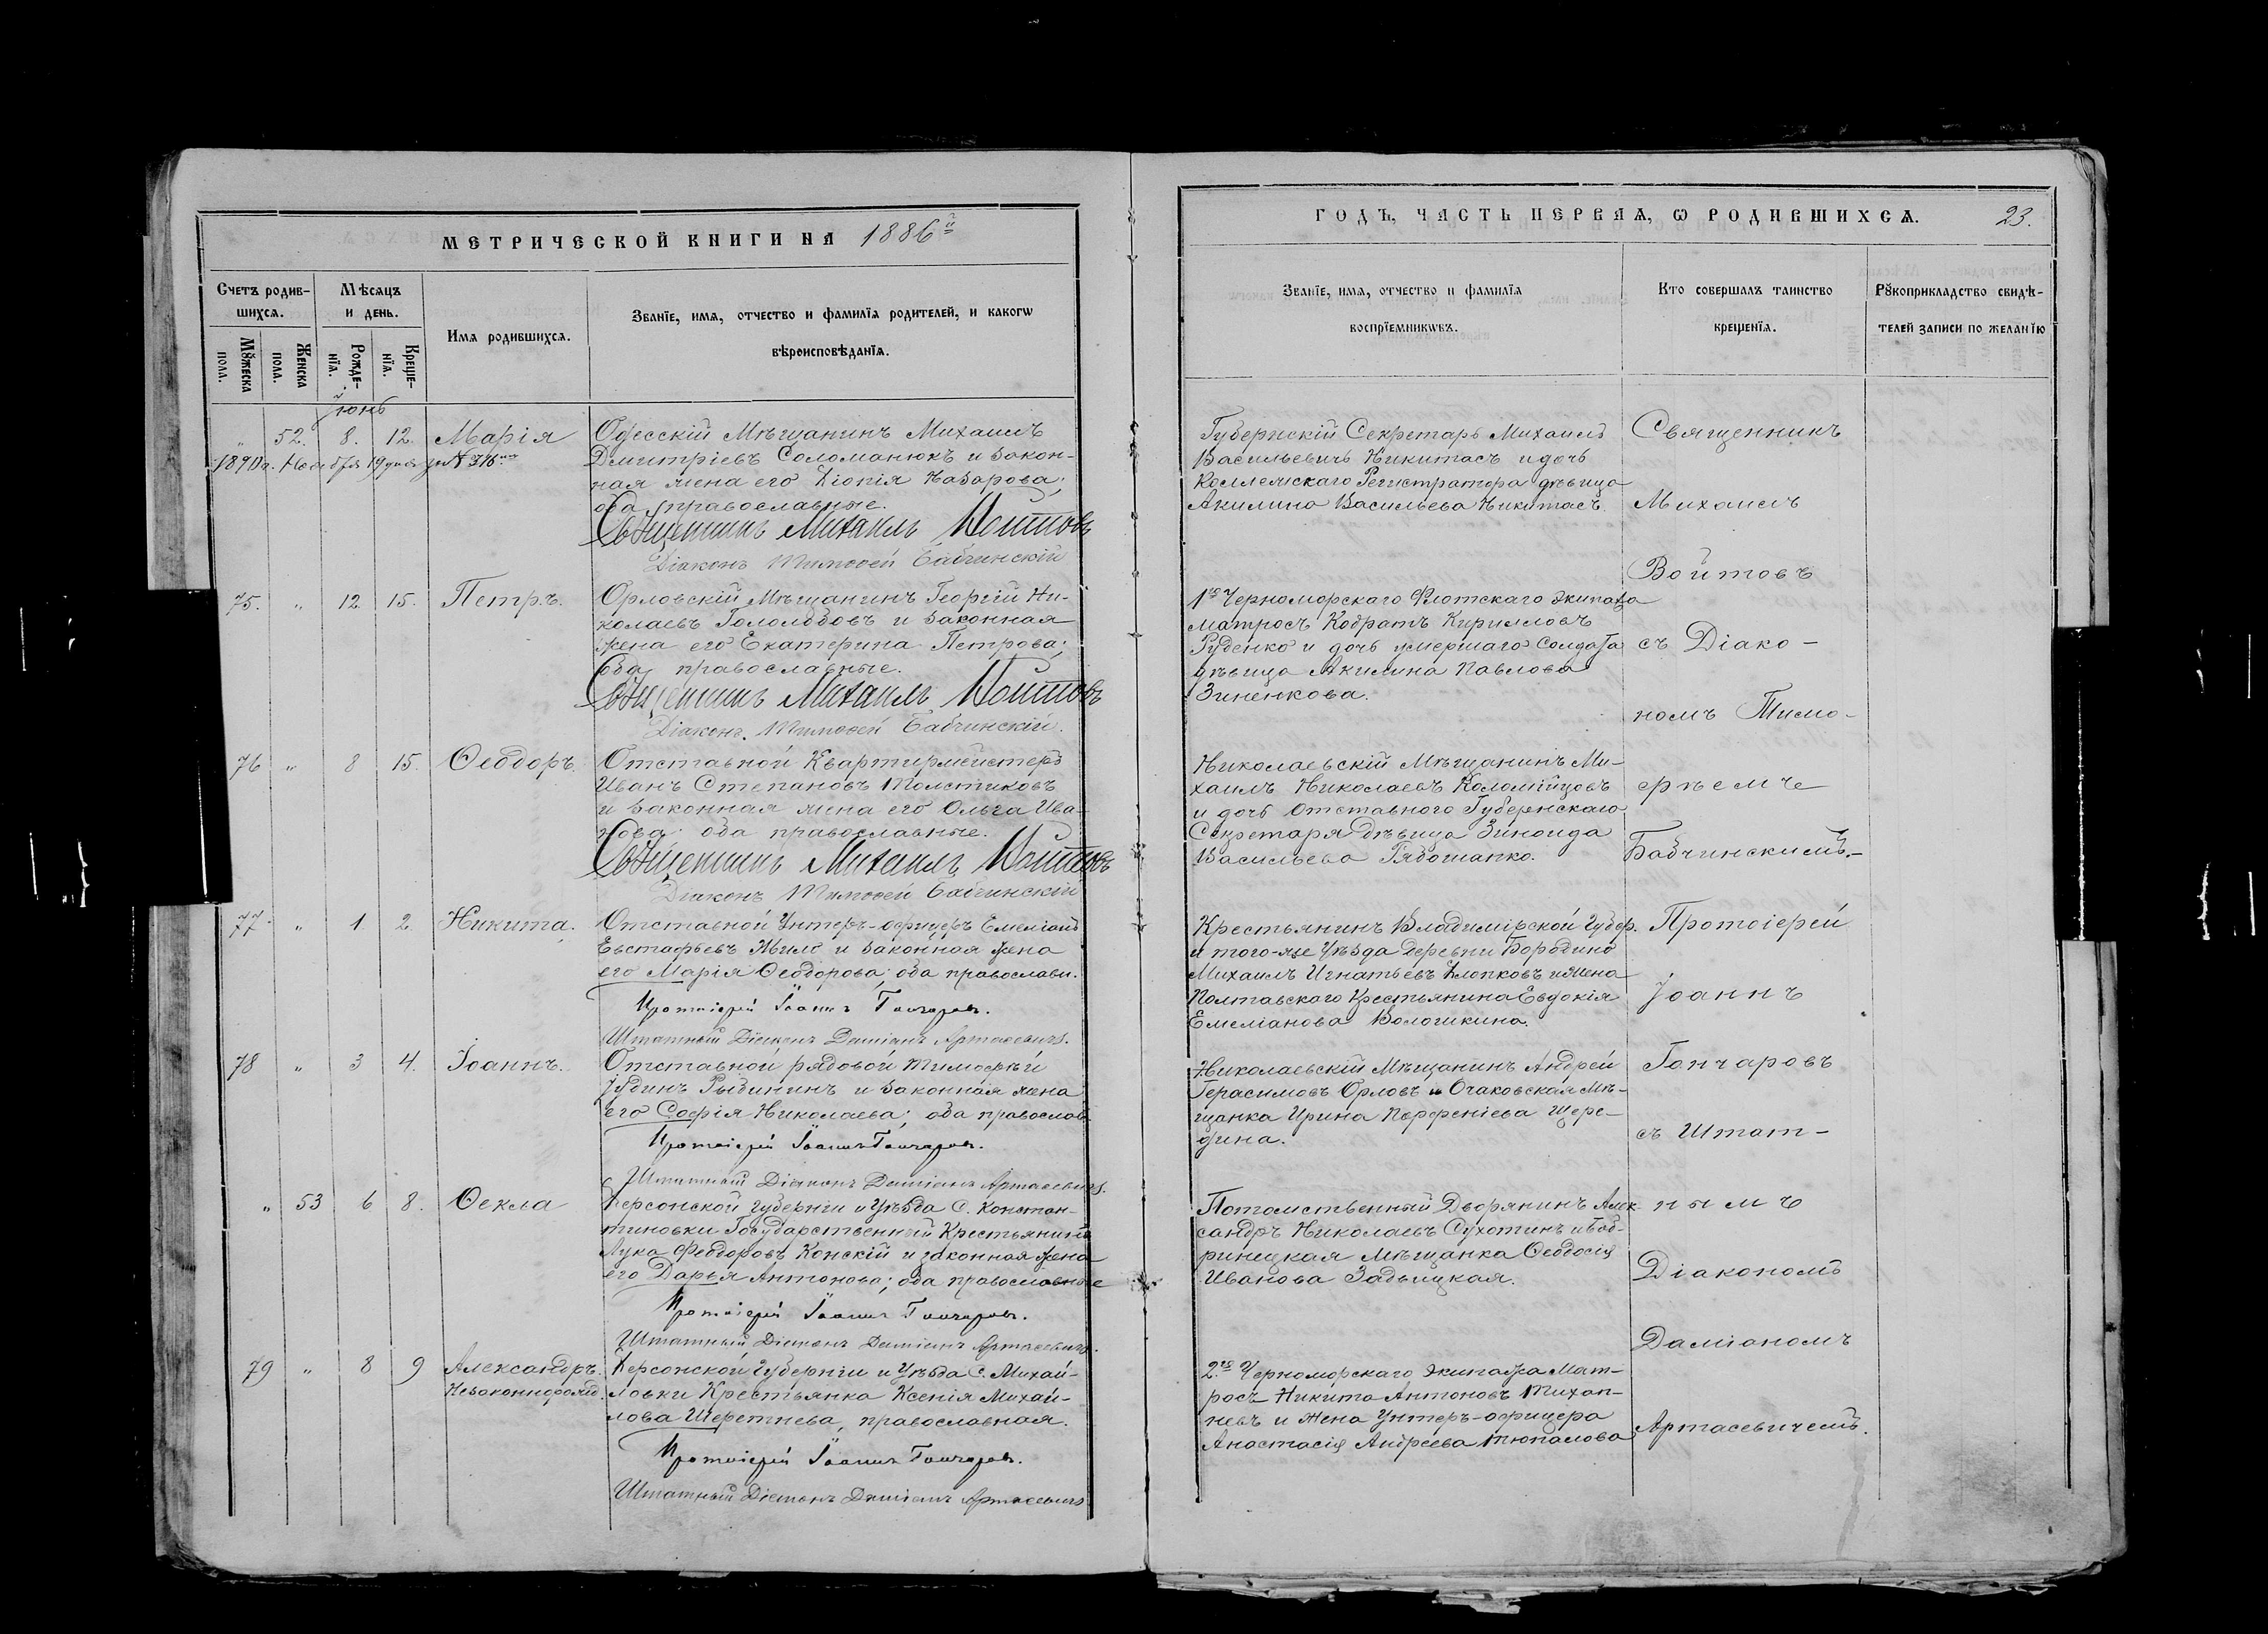 МЕТРИЧЕСКОЙ КНИГИ НА 1886й
Счетъ родив-
шихся.
Мѣсяцъ
и день.
Имя родившихся.
Званїе, имя, отчество и фамилїя родителей, и какогѡ
вѣроисповѣданїя.
Мꙋжеска
пола.
Женска
пола.
Рожде-
нїя.
Креще-
нїя.
Іюнь
" 52. 8. 12. Марія
1890 г. Ноября 19 дня за № 346
Одесскій Мѣщанинъ Михаилъ
Дмитріевъ Соломанюкъ и закон-
ная жена его Назарова;
оба православные.
Священникъ Михаилъ Войтовъ
Діаконъ Тимоѳей Бабчинскій
75. " 12 15. Петръ.
Орловскій Мѣщанинъ Георгій Ни-
колаевъ Гололобовъ и законная
жена его Екатерина Петрова;
оба православные.
Священникъ Михаилъ Войтовъ
Діаконъ Тимоѳей Бабчинскій.
76 " 8 15. Ѳеодоръ.
Отставной Квартирмейстеръ
Иванъ Степановъ Толстиковъ
и законная жена его Ольга Ива-
нова; оба православные.
Священникъ Михаилъ Войтовъ
Діаконъ Тимоѳей Бабчинскій
77. " 1 2 Никита.
Отставной Унтеръ-офицеръ Емеліанъ
Евстафьевъ и законная жена
его Марія Ѳеодорова; оба православн.
Протоіерей Іоаннъ Гончаровъ.
Штатный Діаконъ Даміанъ Артасевичъ.
78 " 3 4. Іоаннъ.
Отставной рядовой Тимоѳѣй
Юдинъ Рыбинъ и законная жена
его Софія Николаева; оба православ.
Протоіерей Іоаннъ Гончаровъ.
Штатный Діаконъ Даміанъ Артасевичъ.
" 53 6 8. Ѳекла
Херсонской губерніи и Уѣзда С. Констан-
тиновки Государственный Крестьянинъ
Лука Феодоровъ Конскій и законная жена
его Дарья Антонова; оба православные
Протоіерей Іоаннъ Гончаровъ.
Штатный Діаконъ Даміанъ Артасевичъ.
79 " 8 9 Александръ.
Незаконнорожд.
Херсонской Губерніи и Уѣзда С. Михай-
ловки Крестьянка Ксенія Михай-
лова Шеретнева, православная.
Протоіерей Іоаннъ Гончаровъ.
Штатный Діаконъ Даміанъ Артасевичъ
ГОДЪ, ЧАСТЬ ПЕРВАЯ, Ѡ РОДИВШИХСЯ. 23.
Званїе, имя, отчество и фамилїя
воспрїемникѡвъ.
Кто совершалъ таинство
крещенїя.
Рꙋкоприкладство свидѣ-
телей записи по желанїю
Губернскій Секретарь Михаилъ
Васильевичъ Никитасъ и дочь
Коллежскаго Регистратора дѣвица
Акилина Васильева Никитасъ.
1го Черноморскаго Флотскаго экипажа
матросъ Кодратъ Кирилловъ
Руденко и дочь умершаго Солдата
дѣвица Акилина Павлова
Зиненкова.
Николаевскій Мѣщанинъ Ми-
хаилъ Николаевъ Коломійцовъ
и дочь Отставного Губернскаго
Секретаря дѣвица Зиноида
Васильева Рябошапко.
Священникъ
Михаилъ
Войтовъ
съ Діако-
номъ Тимо-
ѳѣемъ
Бабчинскимъ.-
Крестьянинъ Владимірской Губер.
и того-же Уѣзда деревни Бородино
Михаилъ Игнатьевъ Хлопковъ и жена
Полтавского Крестьянина Евдокія
Емеліанова Вологикина.
Николаевскій Мѣщанинъ Андрей
Герасимовъ Орловъ и Очаковская Мѣ-
щанка Ирина Парфеніева Щере-
дина.
Потомственный Дворянинъ Алек-
сандръ Николаевъ Сухотинъ и Боб-
ринецкая Мѣщанка Ѳеодосія
Иванова Задыцкая.
2.го Черноморскаго экипажа Мат-
росъ Никита Антоновъ
и жена Унтеръ-офицера
Анастасія Андреева Тюпалова
Протоіерей
Іоаннъ
Гончаровъ
съ Штат-
нымъ
Діакономъ
Даміаномъ
Артасевичемъ.